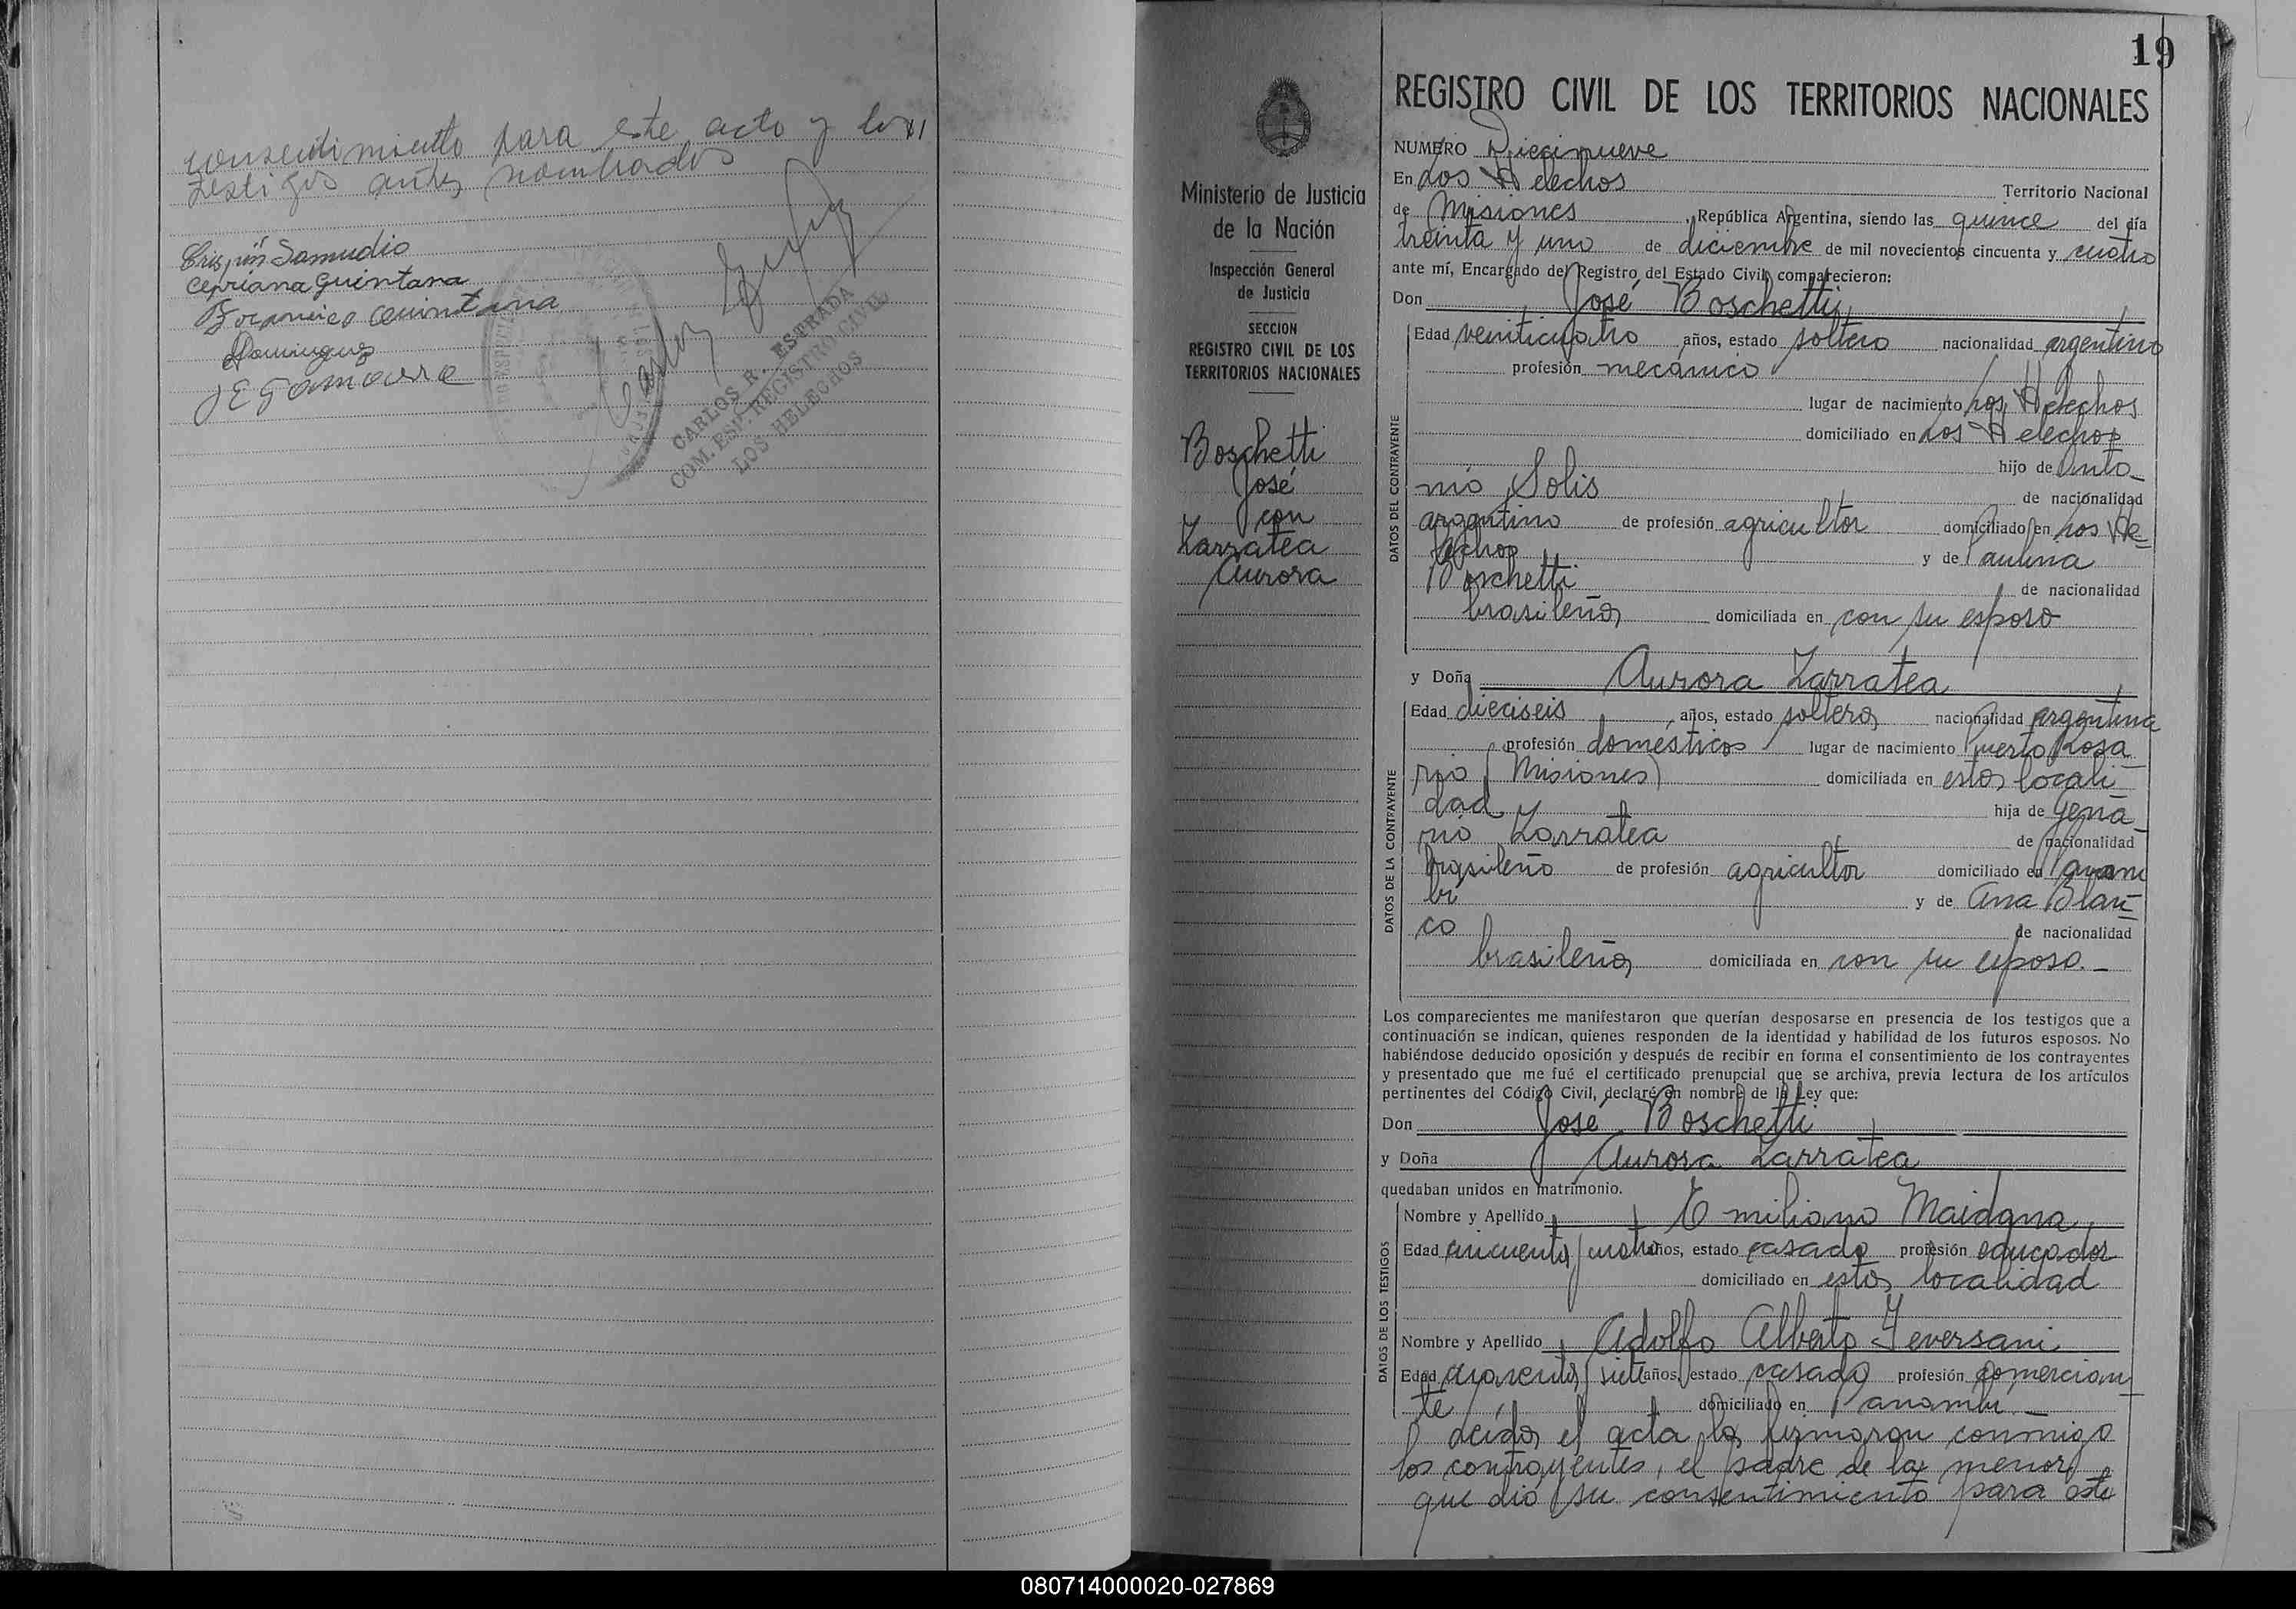 consentimiento para este acto y los
testigos antes nombrados
Crispín Samudio
Cepriana Quintana
Francisco Quintana
Dominguez
CARLOS R. ESTRADA
COM. ESP. REGISTRO CIVIL
LOS HELECHOS
19
REGISTRO CIVIL DE LOS TERRITORIOS NACIONALES
Ministerio de Justicia
de la Nación
Inspección General
de Justicia
SECCION
REGISTRO CIVIL DE LOS
TERRITORIOS NACIONALES
Boschetti
José
con
Zarratea
Aurora
NUMERO Diecinueve
En Los Helechos Territorio Nacional
de Misiones, República Argentina, siendo las quince del día
treinta y uno de diciembre de mil novecientos cincuenta y cuatro
ante mí, Encargado del Registro del Estado Civil, comparecieron:
Don José Boschetti
DATOS DEL CONTRAYENTE
Edad veinticuatro años, estado soltero nacionalidad argentino
profesión mecánico
lugar de nacimiento Los Helechos
domiciliado en Los Helechos
hijo de Anto-
nio Solis de nacionalidad
argentino de profesión agricultor domiciliado en Los He-
lechos y de Paulina
Boschetti de nacionalidad
brasileña domiciliada en con su esposo
y Doña Aurora Zarratea
DATOS DE LA CONTRAYENTE
Edad dieciseis años, estado soltera nacionalidad argentina
profesión domésticos lugar de nacimiento Puerto Rosa-
rio (Misiones) domiciliada en esta locali-
dad y hija de Gena-
rio Zarratea de nacionalidad
brasileño de profesión agricultor domiciliado en Panam
bí y de Ana Blan-
co de nacionalidad
brasileña domiciliada en con su esposo.-
Los comparecientes me manifestaron que querían desposarse en presencia de los testigos que a
continuación se indican, quienes responden de la identidad y habilidad de los futuros esposos. No
habiéndose deducido oposición y después de recibir en forma el consentimiento de los contrayentes
y presentado que me fué el certificado prenupcial que se archiva, previa lectura de los artículos
pertinentes del Código Civil, declaré en nombre de la Ley que:
Don José Boschetti
y Doña Aurora Zarratea
quedaban unidos en matrimonio.
DATOS DE LOS TESTIGOS
Nombre y Apellido Emiliano Maidana
Edad cincuenta y cuatro años, estado casado profesión educador
domiciliado en esta localidad
Nombre y Apellido Adolfo Alberto Feversani
Edad cuarenta y siete años, estado casado profesión comercian-
te domiciliado en Panambí
Leida el acta la firmaron conmigo
los contrayentes, el padre de la menor
que dió su consentimiento para este
080714000020-027869